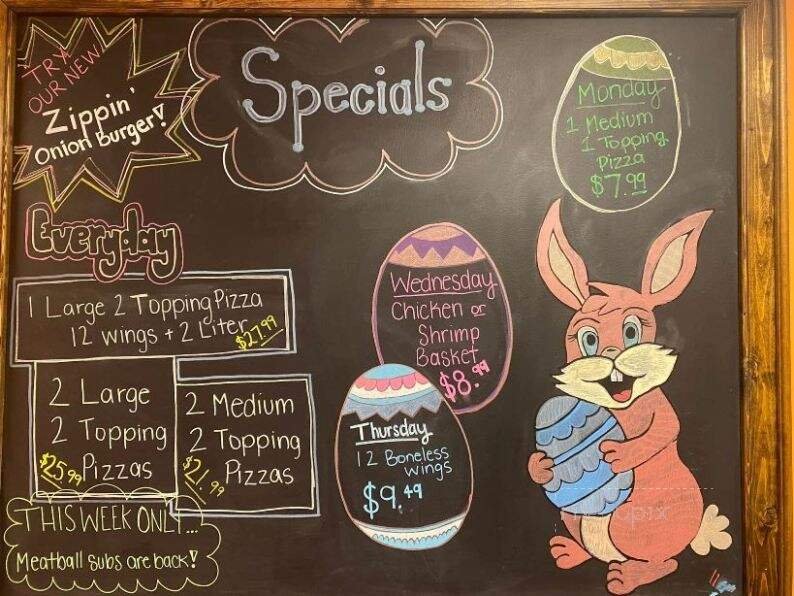 TRY
OUR NEW
Zippin'
Onion Burger!
Specials
Monday
1 Medium
1 Topping
Pizza
$7.99
Everyday
1 Large 2 Topping Pizza
12 wings + 2 Liter
$27.99
2 Large
2 Topping
Pizzas
$25.99
2 Medium
2 Topping
Pizzas
$21.99
Wednesday
Chicken or
Shrimp
Basket
$8.99
Thursday
12 Boneless
wings
$9.49
THIS WEEK ONLY...
Meatball subs are back!